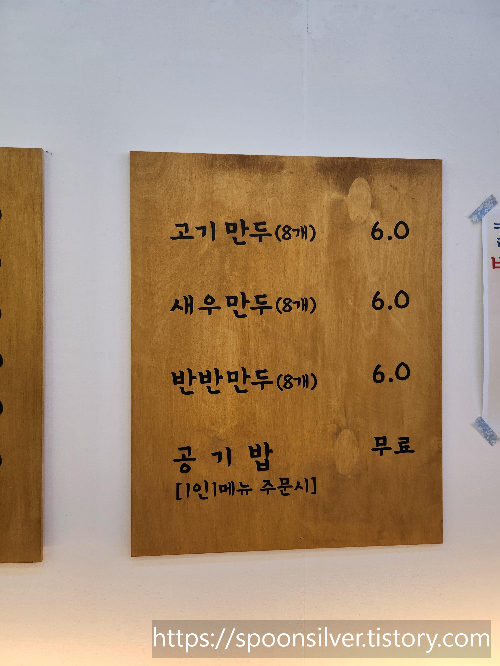 고기만두(8개) 6.0
새우만두(8개) 6.0
반반만두(8개) 6.0
공기밥 무료
[1인1메뉴 주문시]
https://spoonsilver.tistory.com